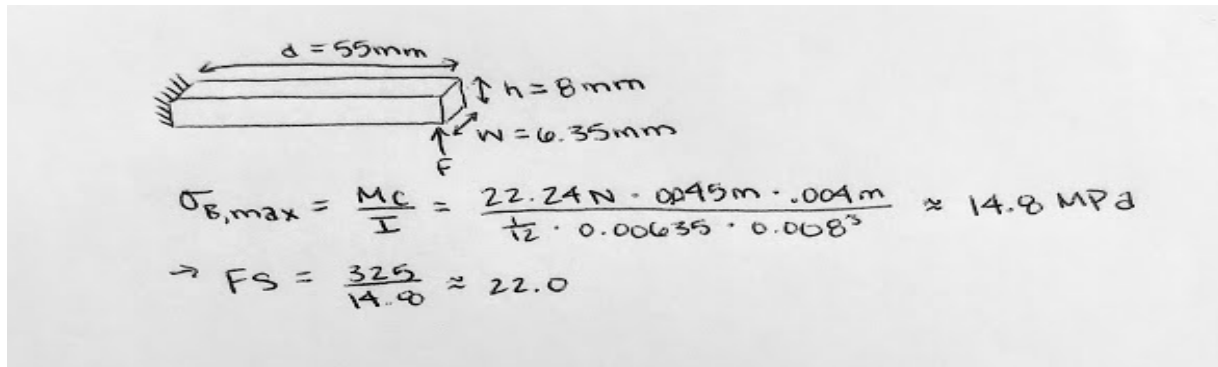 d = 55mm
h = 8mm
w = 6.35mm
F
σB,max = Mc/I = (22.24N · .0045m · .004m)/(1/12 · 0.00635 · 0.008³) ≈ 14.8 MPa
→ FS = 325/14.8 ≈ 22.0